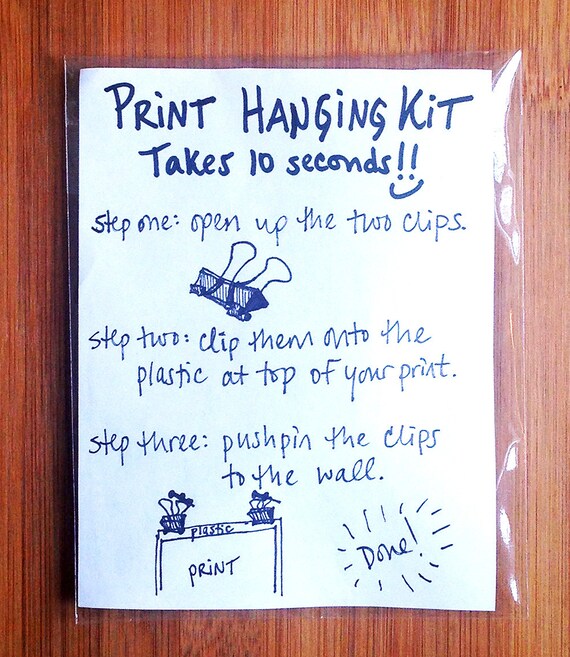 PRINT HANGING KIT
Takes 10 seconds!!
step one: open up the two clips.
step two: clip them onto the
plastic at top of your print.
step three: pushpin the clips
to the wall.
plastic
PRINT
Done!